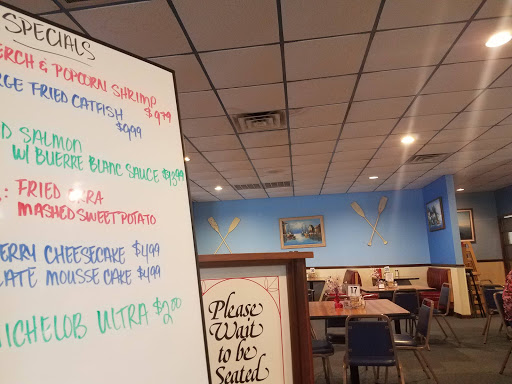 SPECIALS
ERCH & POPCORN SHRIMP
$9.79
RGE FRIED CATFISH
$9.99
D SALMON
W/ BUERRE BLANC SAUCE $13.99
: FRIED OKRA
MASHED SWEET POTATO
ERRY CHEESECAKE $4.99
LATE MOUSSE CAKE $4.99
MICHELOB ULTRA $2.00
Please
Wait
to be
Seated
17